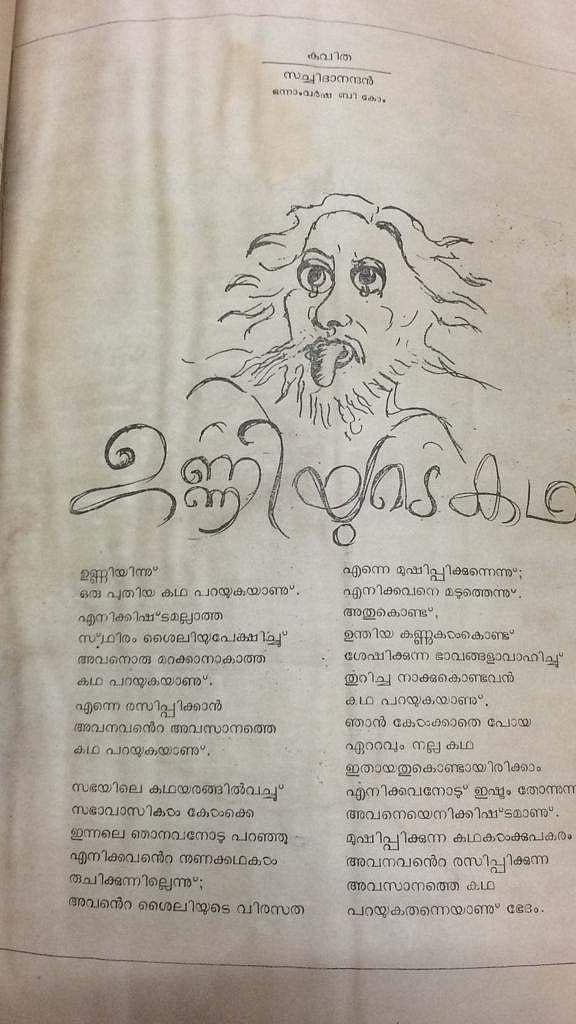 കവിത
സച്ചിദാനന്ദൻ
ഒന്നാംവർഷ ബി കോം
ഉണ്ണിയുടെ കഥ
ഉണ്ണിയിന്നു്
ഒരു പുതിയ കഥ പറയുകയാണു്.
എനിക്കിഷ്ടമല്ലാത്ത
സ്ഥിരം ശൈലിയുപേക്ഷിച്ചു്
അവനൊരു മറക്കാനാകാത്ത
കഥ പറയുകയാണു്.
എന്നെ രസിപ്പിക്കാൻ
അവനവൻെറ അവസാനത്തെ
കഥ പറയുകയാണു്.
സഭയിലെ കഥയരങ്ങിൽവച്ചു്
സഭാവാസികൾ കേൾക്കെ
ഇന്നലെ ഞാനവനോടു പറഞ്ഞു
എനിക്കവൻെറ നുണക്കഥകൾ
രുചിക്കുന്നില്ലെന്നു്;
അവൻെറ ശൈലിയുടെ വിരസത
എന്നെ മുഷിപ്പിക്കുന്നെന്നു്;
എനിക്കവനെ മടുത്തെന്നു്.
അതുകൊണ്ട്,
ഉന്തിയ കണ്ണുകൾകൊണ്ട്
ശേഷിക്കുന്ന ഭാവങ്ങളാവാഹിച്ച്
തുറിച്ച നാക്കുകൊണ്ടവൻ
കഥ പറയുകയാണു്.
ഞാൻ കേൾക്കാതെ പോയ
ഏററവും നല്ല കഥ
ഇതായതുകൊണ്ടായിരിക്കാം
എനിക്കവനോടു് ഇഷ്ടം തോന്നുന്ന
അവനെയെനിക്കിഷ്ടമാണു്.
മുഷിപ്പിക്കുന്ന കഥകൾക്കുപകരം
അവനവൻെറ രസിപ്പിക്കുന്ന
അവസാനത്തെ കഥ
പറയുകതന്നെയാണു് ഭേദം.